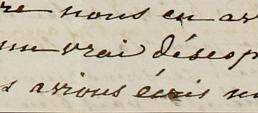 re nous en ar
un vrai déseop
s avions écris no